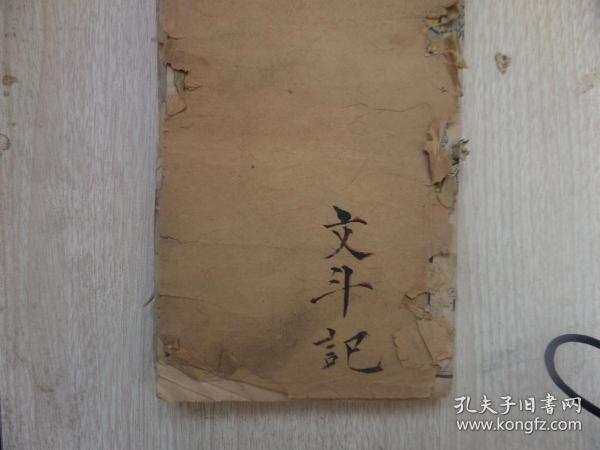 文斗記
孔夫子旧书网
www.kongfz.com